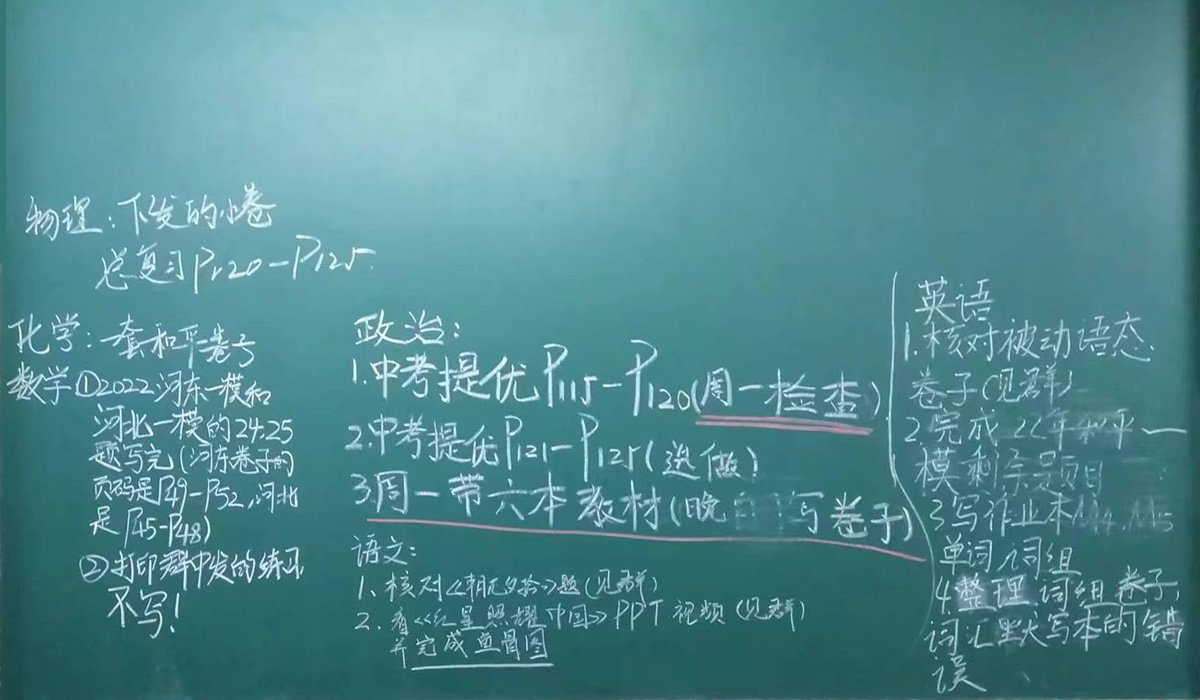 物理：下发的小卷
总复习P120－P125.
化学：一套和平卷子
数学①2022河东一模和
河北一模的24.25
题写完(河东卷子的
页码是P49－P52,河北
是P45－P48)
②打印群中发的练习
不写!
政治：
1.中考提优P115－P120(周一检查)
2.中考提优P121－P125(选做)
3周一带六本教材(晚 写卷子)
语文：
1、核对《朝花夕拾》题(见群)
2.看《红星照耀中国》PPT视频(见群)
并完成鱼骨图
英语
1.核对被动语态.
卷子(见群)
2.完成22年和平一
模剩余题目
3写作业本
单词词组
4.整理词组卷子,
词汇 大写本的错
误、